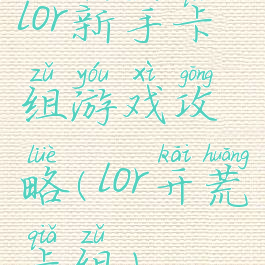 lor新手卡
zǔ yóu xì gōng
组游戏攻
lüè kāi huāng
略(lor开荒
qiǎ zǔ
卡组)